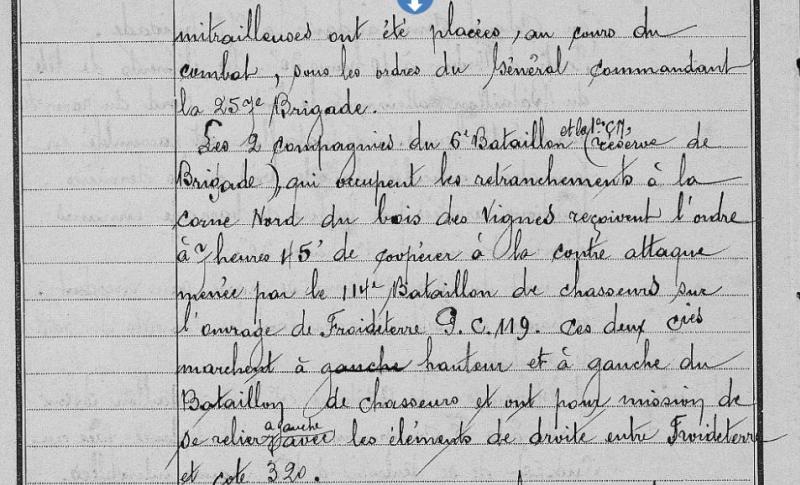 mitrailleuses ont été placées, au cours du
combat, sous les ordres du Général commandant
la 257e Brigade.
Les 2 compagnies du 6e Bataillon et la 1re C.M. (réserve de
Brigade), qui occupent les retranchements à la
corne Nord du bois des Vignes reçoivent l'ordre
à 7 heures 45' de coopérer à la contre attaque
menée par le 114e Bataillon de chasseurs sur
l'ouvrage de Froideterre P.C. 119. Ces deux cies
marchent à gauche hauteur et à gauche du
Bataillon de chasseurs et ont pour mission de
se relier à gauche avec les éléments de droite entre Froideterre
et cote 320.